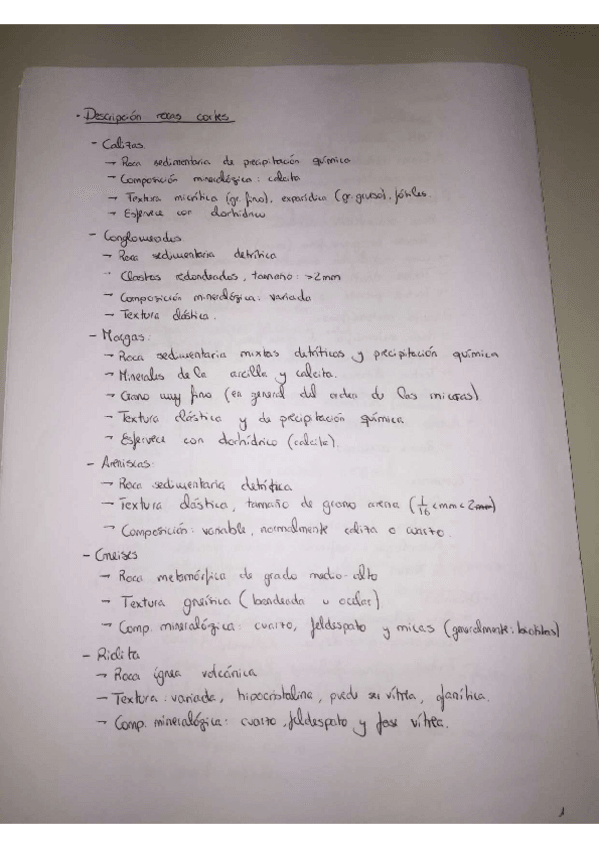 · Descripción rocas cortes
- Calizas.
→ Roca sedimentaria de precipitación química
→ Composición mineralógica: calcita
→ Textura micrítica (gr. fino), esparídica (gr. grueso), fósiles.
→ Esfervece con clorhídrico
- Conglomerados
→ Roca sedimentaria detrítica
→ Clastos redondeados, tamaño: >2mm
→ Composición mineralógica: variada
→ Textura clástica.
- Margas:
→ Roca sedimentaria mixtas detríticas y precipitación química
→ Minerales de la arcilla y calcita.
→ Grano muy fino (en general del orden de las micras)
→ Textura clástica y de precipitación química
→ Esfervece con clorhídrico (calcita).
- Areniscas:
→ Roca sedimentaria detrítica
→ Textura clástica, tamaño de grano arena (1/16 < mm < 2mm)
→ Composición: variable, normalmente caliza o cuarzo.
- Gneises
→ Roca metamórfica de grado medio-alto
→ Textura gneísica (bandeada u ocelar)
→ Comp. mineralógica: cuarzo, feldespato y micas (generalmente: biotitas)
- Riolita
→ Roca ígnea volcánica
→ Textura: variada, hipocristalina, puede ser vítrea, afanítica.
→ Comp. mineralógica: cuarzo, feldespato y fase vítrea.
1